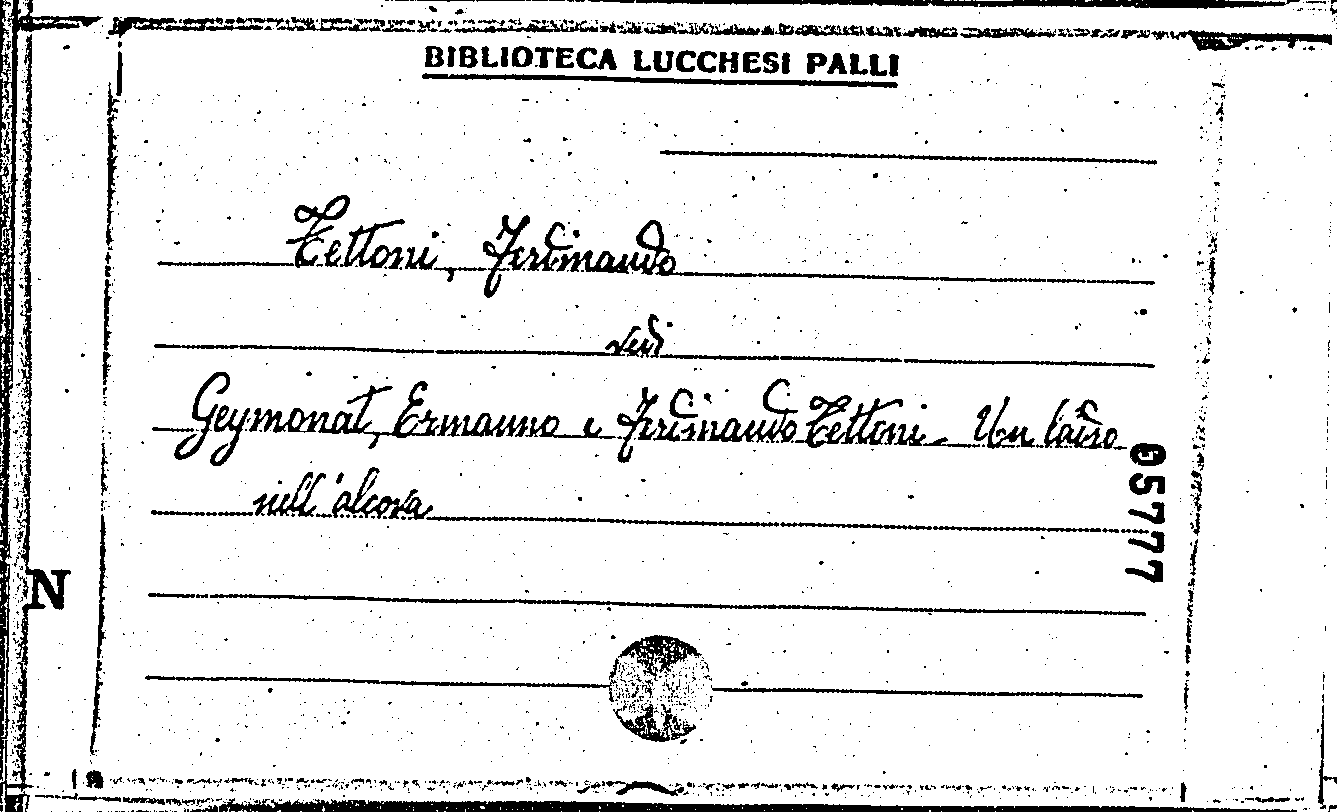 BIBLIOTECA LUCCHESI PALLI
Tettoni, Ferdinando
vedi
Geymonat, Ermanno e Ferdinando Tettoni - Un ladro
nell'alcova
05777
N